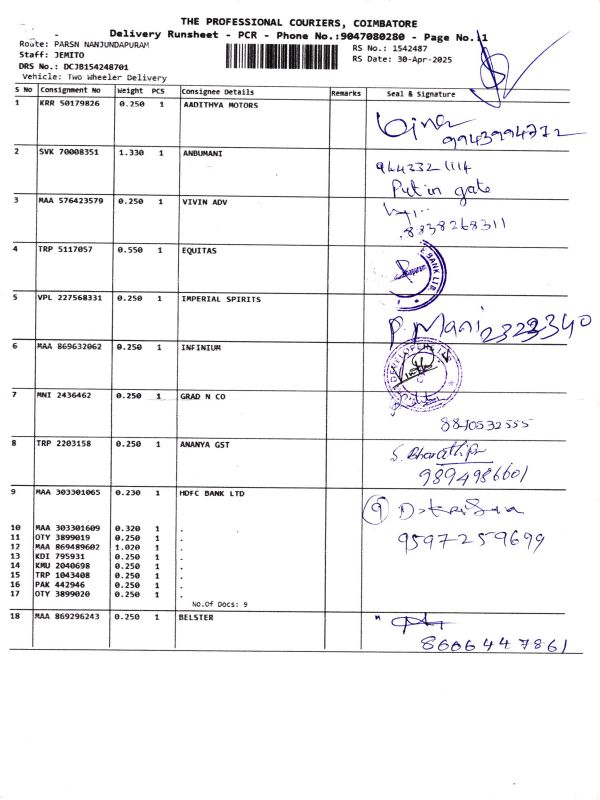 THE PROFESSIONAL COURIERS, COIMBATORE
Delivery Runsheet - PCR - Phone No.:9047080280 - Page No.:1
Route: PARSN NANJUNDAPURAM
Staff: JEMITO
DRS No.: DCJB154248701
Vehicle: Two Wheeler Delivery
RS No.: 1542487
RS Date: 30-Apr-2025
S No Consignment No Weight PCS Consignee Details Remarks Seal & Signature
1 KRR 50179826 0.250 1 AADITHYA MOTORS
9943994772
2 SVK 70008351 1.330 1 ANBUMANI
Put in gate
3 MAA 576423579 0.250 1 VIVIN ADV
8838268311
4 TRP 5117057 0.550 1 EQUITAS
BANK LTD
5 VPL 227568331 0.250 1 IMPERIAL SPIRITS
P. Mani 2323340
6 MAA 869632062 0.250 1 INFINIUM
7 MNI 2436462 0.250 1 GRAD N CO
8840532555
8 TRP 2203158 0.250 1 ANANYA GST
9894986601
9 MAA 303301065 0.230 1 HDFC BANK LTD
9
9597259699
10 MAA 303301609 0.320 1 .
11 OTY 3899019 0.250 1 .
12 MAA 869489602 1.020 1 .
13 KDI 795931 0.250 1 .
14 KMU 2040698 0.250 1 .
15 TRP 1043408 0.250 1 .
16 PAK 442946 0.250 1 .
17 OTY 3899020 0.250 1 .
No.Of Docs: 9
18 MAA 869296243 0.250 1 BELSTER
8606447861